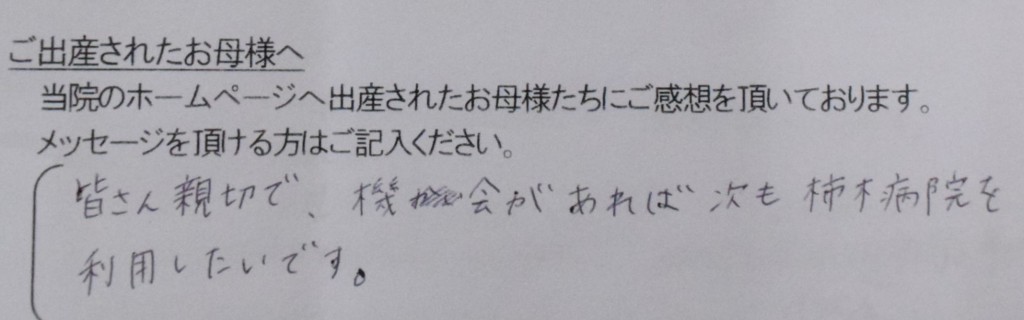 ご出産されたお母様へ
当院のホームページへ出産されたお母様たちにご感想を頂いております。
メッセージを頂ける方はご記入ください。
皆さん親切で、機会があれば次も柿木病院を
利用したいです。